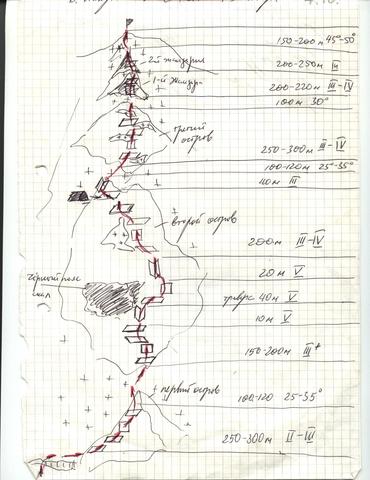 150-200м 45°-50°
2-й жандарм
200-250м III
1-й жандарм
200-220м III-IV
100м 30°
третий
остров
250-300м III-IV
100-120м 25°-35°
40м III
второй остров
200м III-IV
20м V
Чёрный
скал
траверс 40м V
10м V
150-200м III+
первый остров
100-120 25-35°
250-300м II-III